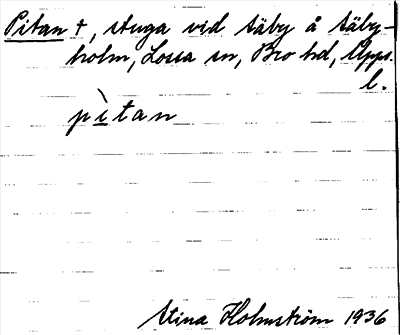 Pitan †, stuga vid Säby å Säby-
holm, Lossa sn, Bro hd, Upps.
l.
pìtan
Stina Holmström 1936